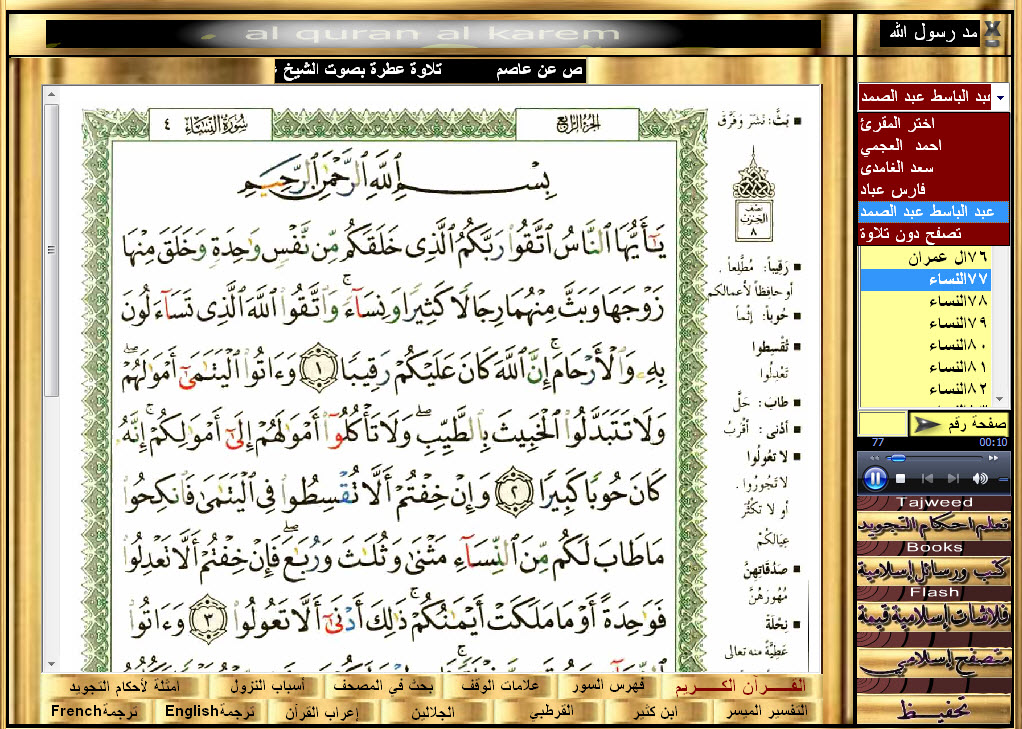 al quran al karem
مد رسول الله
ص عن عاصم تلاوة عطرة بصوت الشيخ
سورة النساء ٤
الجزء الرابع
بِسْمِ ٱللَّهِ ٱلرَّحْمَٰنِ ٱلرَّحِيمِ
يَٰٓأَيُّهَا ٱلنَّاسُ ٱتَّقُوا۟ رَبَّكُمُ ٱلَّذِى خَلَقَكُم مِّن نَّفْسٍ وَٰحِدَةٍ وَخَلَقَ مِنْهَا
زَوْجَهَا وَبَثَّ مِنْهُمَا رِجَالًا كَثِيرًا وَنِسَآءً ۚ وَٱتَّقُوا۟ ٱللَّهَ ٱلَّذِى تَسَآءَلُونَ
بِهِۦ وَٱلْأَرْحَامَ ۚ إِنَّ ٱللَّهَ كَانَ عَلَيْكُمْ رَقِيبًا ١ وَءَاتُوا۟ ٱلْيَتَٰمَىٰٓ أَمْوَٰلَهُمْ ۖ
وَلَا تَتَبَدَّلُوا۟ ٱلْخَبِيثَ بِٱلطَّيِّبِ ۖ وَلَا تَأْكُلُوٓا۟ أَمْوَٰلَهُمْ إِلَىٰٓ أَمْوَٰلِكُمْ ۚ إِنَّهُۥ
كَانَ حُوبًا كَبِيرًا ٢ وَإِنْ خِفْتُمْ أَلَّا تُقْسِطُوا۟ فِى ٱلْيَتَٰمَىٰ فَٱنكِحُوا۟
مَا طَابَ لَكُم مِّنَ ٱلنِّسَآءِ مَثْنَىٰ وَثُلَٰثَ وَرُبَٰعَ ۖ فَإِنْ خِفْتُمْ أَلَّا تَعْدِلُوا۟
فَوَٰحِدَةً أَوْ مَا مَلَكَتْ أَيْمَٰنُكُمْ ۚ ذَٰلِكَ أَدْنَىٰٓ أَلَّا تَعُولُوا۟ ٣ وَءَاتُوا۟
بَثَّ: نَشَرَ وَفَرَّقَ
نصف
الحزب
٨
رَقِيباً: مُطَّلِعاً .
أو حافظاً لأعمالكم
حُوباً: إِثْماً
تُقْسِطوا
تَعْدِلُوا
طابَ: حَلَّ
أدْنى: أقْرَبُ
لا تعُولُوا
لا تَجُورُوا .
أو لا تكثُرَ
عِيَالُكُمْ
صَدُقَاتِهِنَّ
مُهُورَهُنَّ
نِحْلَةً
عَطِيَّةً منه تعالى
عبد الباسط عبد الصمد
اختر المقرئ
احمد العجمي
سعد الغامدى
فارس عباد
عبد الباسط عبد الصمد
تصفح دون تلاوة
٧٦ال عمران
٧٧النساء
٧٨النساء
٧٩النساء
٨٠النساء
٨١النساء
٨٢النساء
صفحة رقم
77 00:10
Tajweed
تعلم احكام التجويد
Books
كتب ورسائل إسلامية
Flash
فلاشات إسلامية قيمة
متصفح إسلامي
تحفيظ
القـــرآن الكـــريم
فهرس السور
علامات الوقف
بحث في المصحف
أسباب النزول
أمثلة لأحكام التجويد
التفسير الميسر
ابن كثير
القرطبي
الجلالين
إعراب القرآن
ترجمة English
ترجمة French